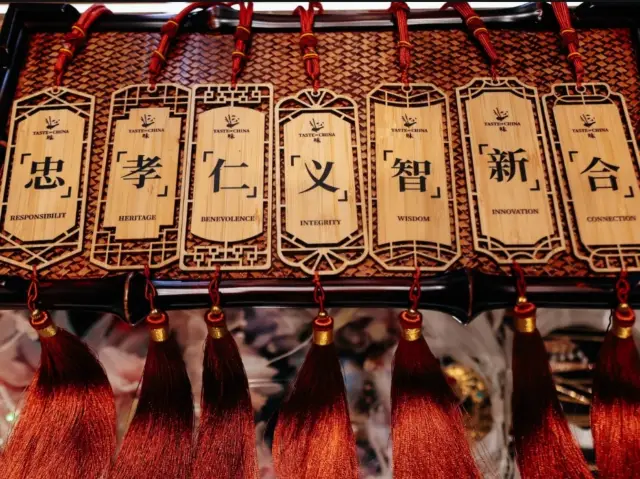 TASTE OF CHINA
味
忠
RESPONSIBILIT
TASTE OF CHINA
味
孝
HERITAGE
TASTE OF CHINA
味
仁
BENEVOLENCE
TASTE OF CHINA
味
义
INTEGRITY
TASTE OF CHINA
味
智
WISDOM
TASTE OF CHINA
味
新
INNOVATION
TASTE OF CHINA
味
合
CONNECTION